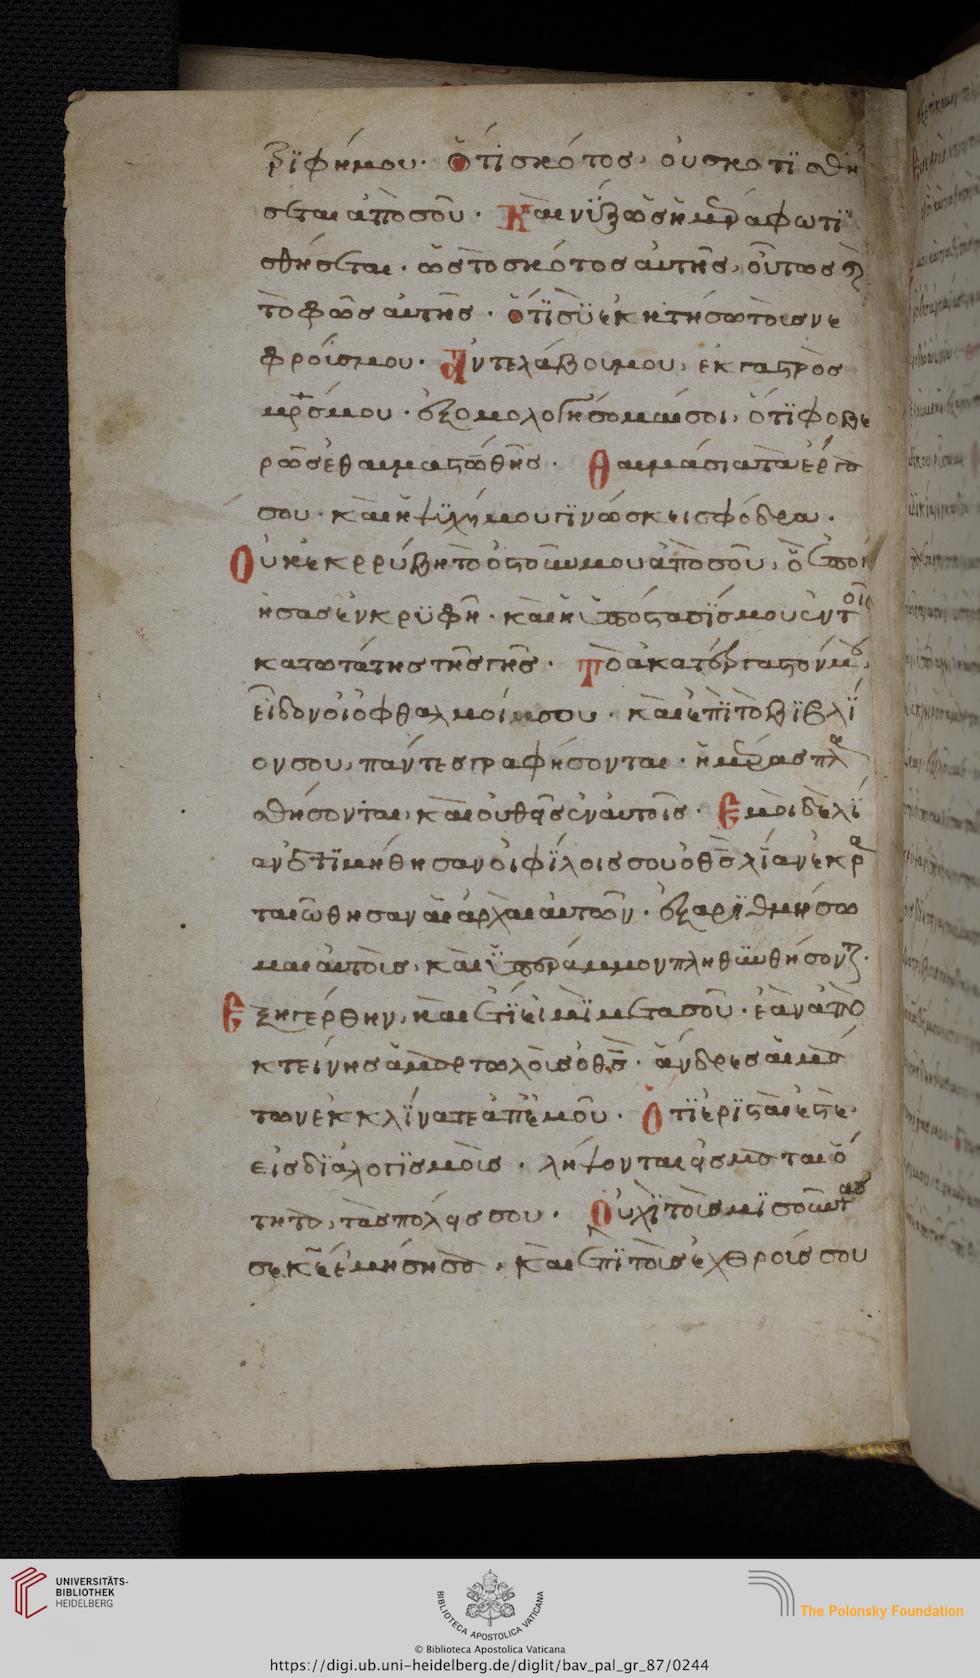 βϊ φήμου· ὅτι σκότος, οὐ σκοτϊσθή
σεται ἀπὸ σοῦ· Καὶ νὺξ ὡς ἡμέρα φωτϊ
σθήσεται· ὡς τὸ σκότος αὐτῆς, οὕτως καὶ
τὸ φῶς αὐτῆς· ὅτϊ σὺ ἐκτήσω τοὺς νε
φρούς μου· Ἀντελάβου μου, ἐκ γαστρὸς
μρς μου· ἐξομολογήσομαί σοι, ὅτϊ φοβε
ρῶς ἐθαυμαστώθης· Θαυμάσια τὰ ἔργα
σου· καὶ ἡ ψϊχή μου γϊνώσκει σφόδρα·
Οὐκ ἐκρρύβη τὸ ὀστοῦν μου ἀπὸ σοῦ, ὃ ἐποί
ησας ἐν κρϋφῆ· καὶ ἡ ὑπόστασϊς μου ἐν τοῖς
κατωτάτης τῆς γῆς· Τὸ ἀκατέργαστόν μου,
εἶδον οἱ ὀφθαλμοί σου· καὶ ἐπὶ τὸ βϊβλϊ
ον σου, πάντες γραφήσονται· ἡμέρας πλα
σθήσονται, καὶ οὐθεὶς ἐν αὐτοῖς· Ἐμοὶ δὲ λϊ
αν ἐτϊμήθησαν οἱ φϊλοι σου ὁ θς λϊαν ἐκρα
ταιώθησαν αἱ ἀρχαὶ αὐτῶν· ἐξαρϊθμήσο
μαι αὐτοὺς, καὶ ὑπὲρ ἄμμον πληθυνθήσονται·
Ἐξηγέρθην, καὶ ἔτϊ εἰμὶ μετὰ σοῦ· ἐὰν ἀπο
κτείνης ἁμαρτωλοὺς ὁ θς· ἄνδρες αἱμά
των ἐκκλϊνατε ἀπ' ἐμοῦ· Ὅτϊ ἐρϊσταί ἐστε
εἰς δϊαλογϊσμοὺς· λήψονται εἰς ματαιό
τητα, τὰς πόλεις σου· Οὐχϊ τοὺς μϊσοῦντας
σε κε ἐμίσησα, καὶ ἐπὶ τοὺς ἐχθρούς σου
UNIVERSITÄTS-
BIBLIOTHEK
HEIDELBERG
BIBLIOTECA APOSTOLICA VATICANA
The Polonsky Foundation
© Biblioteca Apostolica Vaticana
https://digi.ub.uni-heidelberg.de/diglit/bav_pal_gr_87/0244